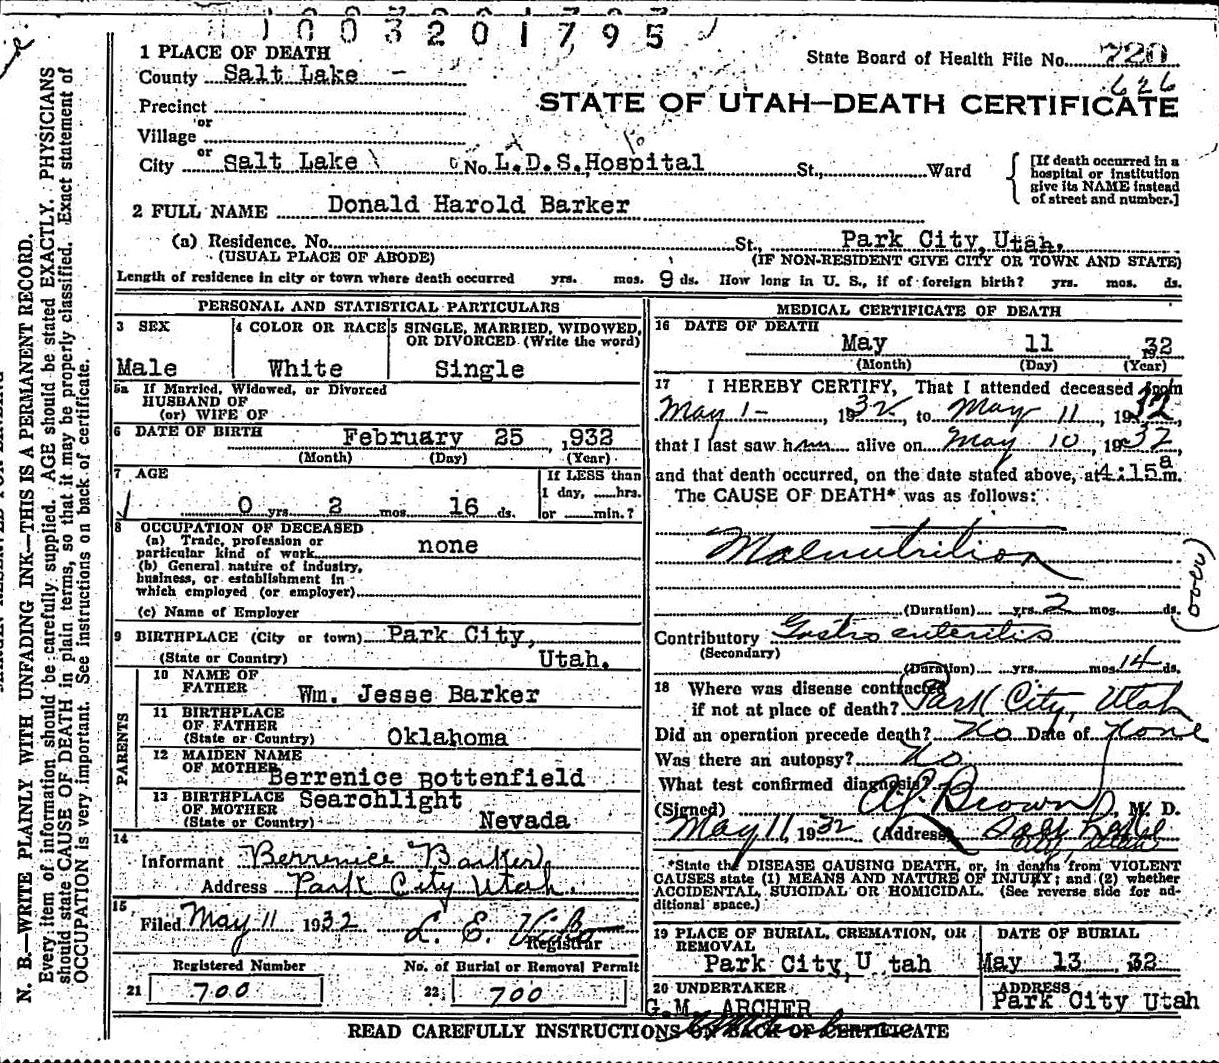 1003201795
1 PLACE OF DEATH
State Board of Health File No. 720
County Salt Lake -
626
STATE OF UTAH—DEATH CERTIFICATE
Precinct
or
Village
or
City Salt Lake No. L.D.S. Hospital St., Ward
[If death occurred in a hospital or institution give its NAME instead of street and number.]
2 FULL NAME Donald Harold Barker
(a) Residence. No. St., Park City, Utah.
(USUAL PLACE OF ABODE) (IF NON-RESIDENT GIVE CITY OR TOWN AND STATE)
Length of residence in city or town where death occurred yrs. mos. 9 ds. How long in U. S., if of foreign birth? yrs. mos. ds.
PERSONAL AND STATISTICAL PARTICULARS
3 SEX 4 COLOR OR RACE 5 SINGLE, MARRIED, WIDOWED, OR DIVORCED (Write the word)
Male White Single
5a If Married, Widowed, or Divorced
HUSBAND OF
(or) WIFE OF
6 DATE OF BIRTH February 25, 1932
(Month) (Day) (Year)
7 AGE If LESS than
1 day, hrs.
0 yrs. 2 mos. 16 ds. or min.?
8 OCCUPATION OF DECEASED
(a) Trade, profession or
particular kind of work none
(b) General nature of industry,
business, or establishment in
which employed (or employer)
(c) Name of Employer
9 BIRTHPLACE (City or town) Park City,
(State or Country) Utah.
PARENTS
10 NAME OF
FATHER Wm. Jesse Barker
11 BIRTHPLACE
OF FATHER
(State or Country) Oklahoma
12 MAIDEN NAME
OF MOTHER Berrenice Bottenfield
13 BIRTHPLACE Searchlight
OF MOTHER
(State or Country) Nevada
14
Informant Berrenice Barker,
Address Park City Utah.
15
Filed May 11 1932 L. E.
Registrar
Registered Number No. of Burial or Removal Permit
21 700 22 700
MEDICAL CERTIFICATE OF DEATH
16 DATE OF DEATH
May 11 1932
(Month) (Day) (Year)
17 I HEREBY CERTIFY, That I attended deceased from
May 1 - , 1932, to May 11, 1932
that I last saw him alive on May 10, 1932
and that death occurred, on the date stated above, at 4:15 a m.
The CAUSE OF DEATH* was as follows:
Malnutrition
(Duration) yrs. 2 mos. ds.
(over)
Contributory Gastro enteritis
(Secondary)
(Duration) yrs. mos. 14 ds.
18 Where was disease contracted
if not at place of death? Park City, Utah
Did an operation precede death? No Date of None
Was there an autopsy? No
What test confirmed diagnosis?
(Signed) Brown, M. D.
May 11, 1932 (Address) Salt Lake
City, Utah
*State the DISEASE CAUSING DEATH, or, in deaths from VIOLENT
CAUSES state (1) MEANS AND NATURE OF INJURY; and (2) whether
ACCIDENTAL, SUICIDAL OR HOMICIDAL. (See reverse side for ad-
ditional space.)
19 PLACE OF BURIAL, CREMATION, OR
REMOVAL
Park City, U tah
DATE OF BURIAL
May 13, 32
20 UNDERTAKER
G.M. ARCHER
ADDRESS
Park City Utah
READ CAREFULLY INSTRUCTIONS ON BACK OF CERTIFICATE
N. B.—WRITE PLAINLY WITH UNFADING INK—THIS IS A PERMANENT RECORD.
Every item of information should be carefully supplied. AGE should be stated EXACTLY. PHYSICIANS
should state CAUSE OF DEATH in plain terms, so that it may be properly classified. Exact statement of
OCCUPATION is very important. See instructions on back of certificate.